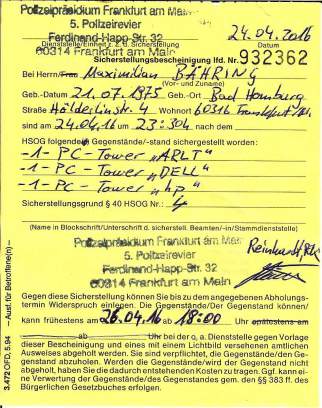 Polizeipräsidium Frankfurt am Main
5. Polizeirevier
Ferdinand-Happ-Str. 32
60314 Frankfurt am Main
24.04.2016
Dienststelle/Einheit z. B. Sicherstellung Datum
Sicherstellungsbescheinigung lfd. Nr. 932362
Bei Herrn/Frau Maximilian BÄHRING
(Vor- und Zuname)
Geb.-Datum 21.07.1975 Geb.-Ort Bad Homburg
Straße Hölderlinstr. 4 Wohnort 60316 Frankfurt/M.
sind am 24.04.16 um 23:30 h nach dem
HSOG folgende Gegenstände/-stand sichergestellt worden:
-1- PC-Tower „ARLT"
-1- PC-Tower „DELL"
-1- PC-Tower „hp"
Sicherstellungsgrund § 40 HSOG Nr.: 4
(Name in Blockschrift/Unterschrift d. sicherstell. Beamten/-in/Stammdienststelle)
Polizeipräsidium Frankfurt am Main
5. Polizeirevier
Ferdinand-Happ-Str. 32
60314 Frankfurt am Main
Reinhardt,
Gegen diese Sicherstellung können Sie bis zu dem angegebenen Abholungs-
termin Widerspruch einlegen. Die Gegenstände/Der Gegenstand können/
kann frühestens am 26.04.16 ab 18:00 Uhr spätestens am
ab Uhr bei der o. a. Dienststelle gegen Vorlage
dieser Bescheinigung und eines mit einem Lichtbild versehenen amtlichen
Ausweises abgeholt werden. Sie sind verpflichtet, die Gegenstände/den Ge-
genstand abzuholen. Werden die Gegenstände/wird der Gegenstand nicht
abgeholt, haben Sie die dadurch entstehenden Kosten zu tragen. Ggf. kann ei-
ne Verwertung der Gegenstände/des Gegenstandes gem. den §§ 383 ff. des
Bürgerlichen Gesetzbuches erfolgen.
3.472 OFD, 5.94 – Ausf. für Betroffene(n) –